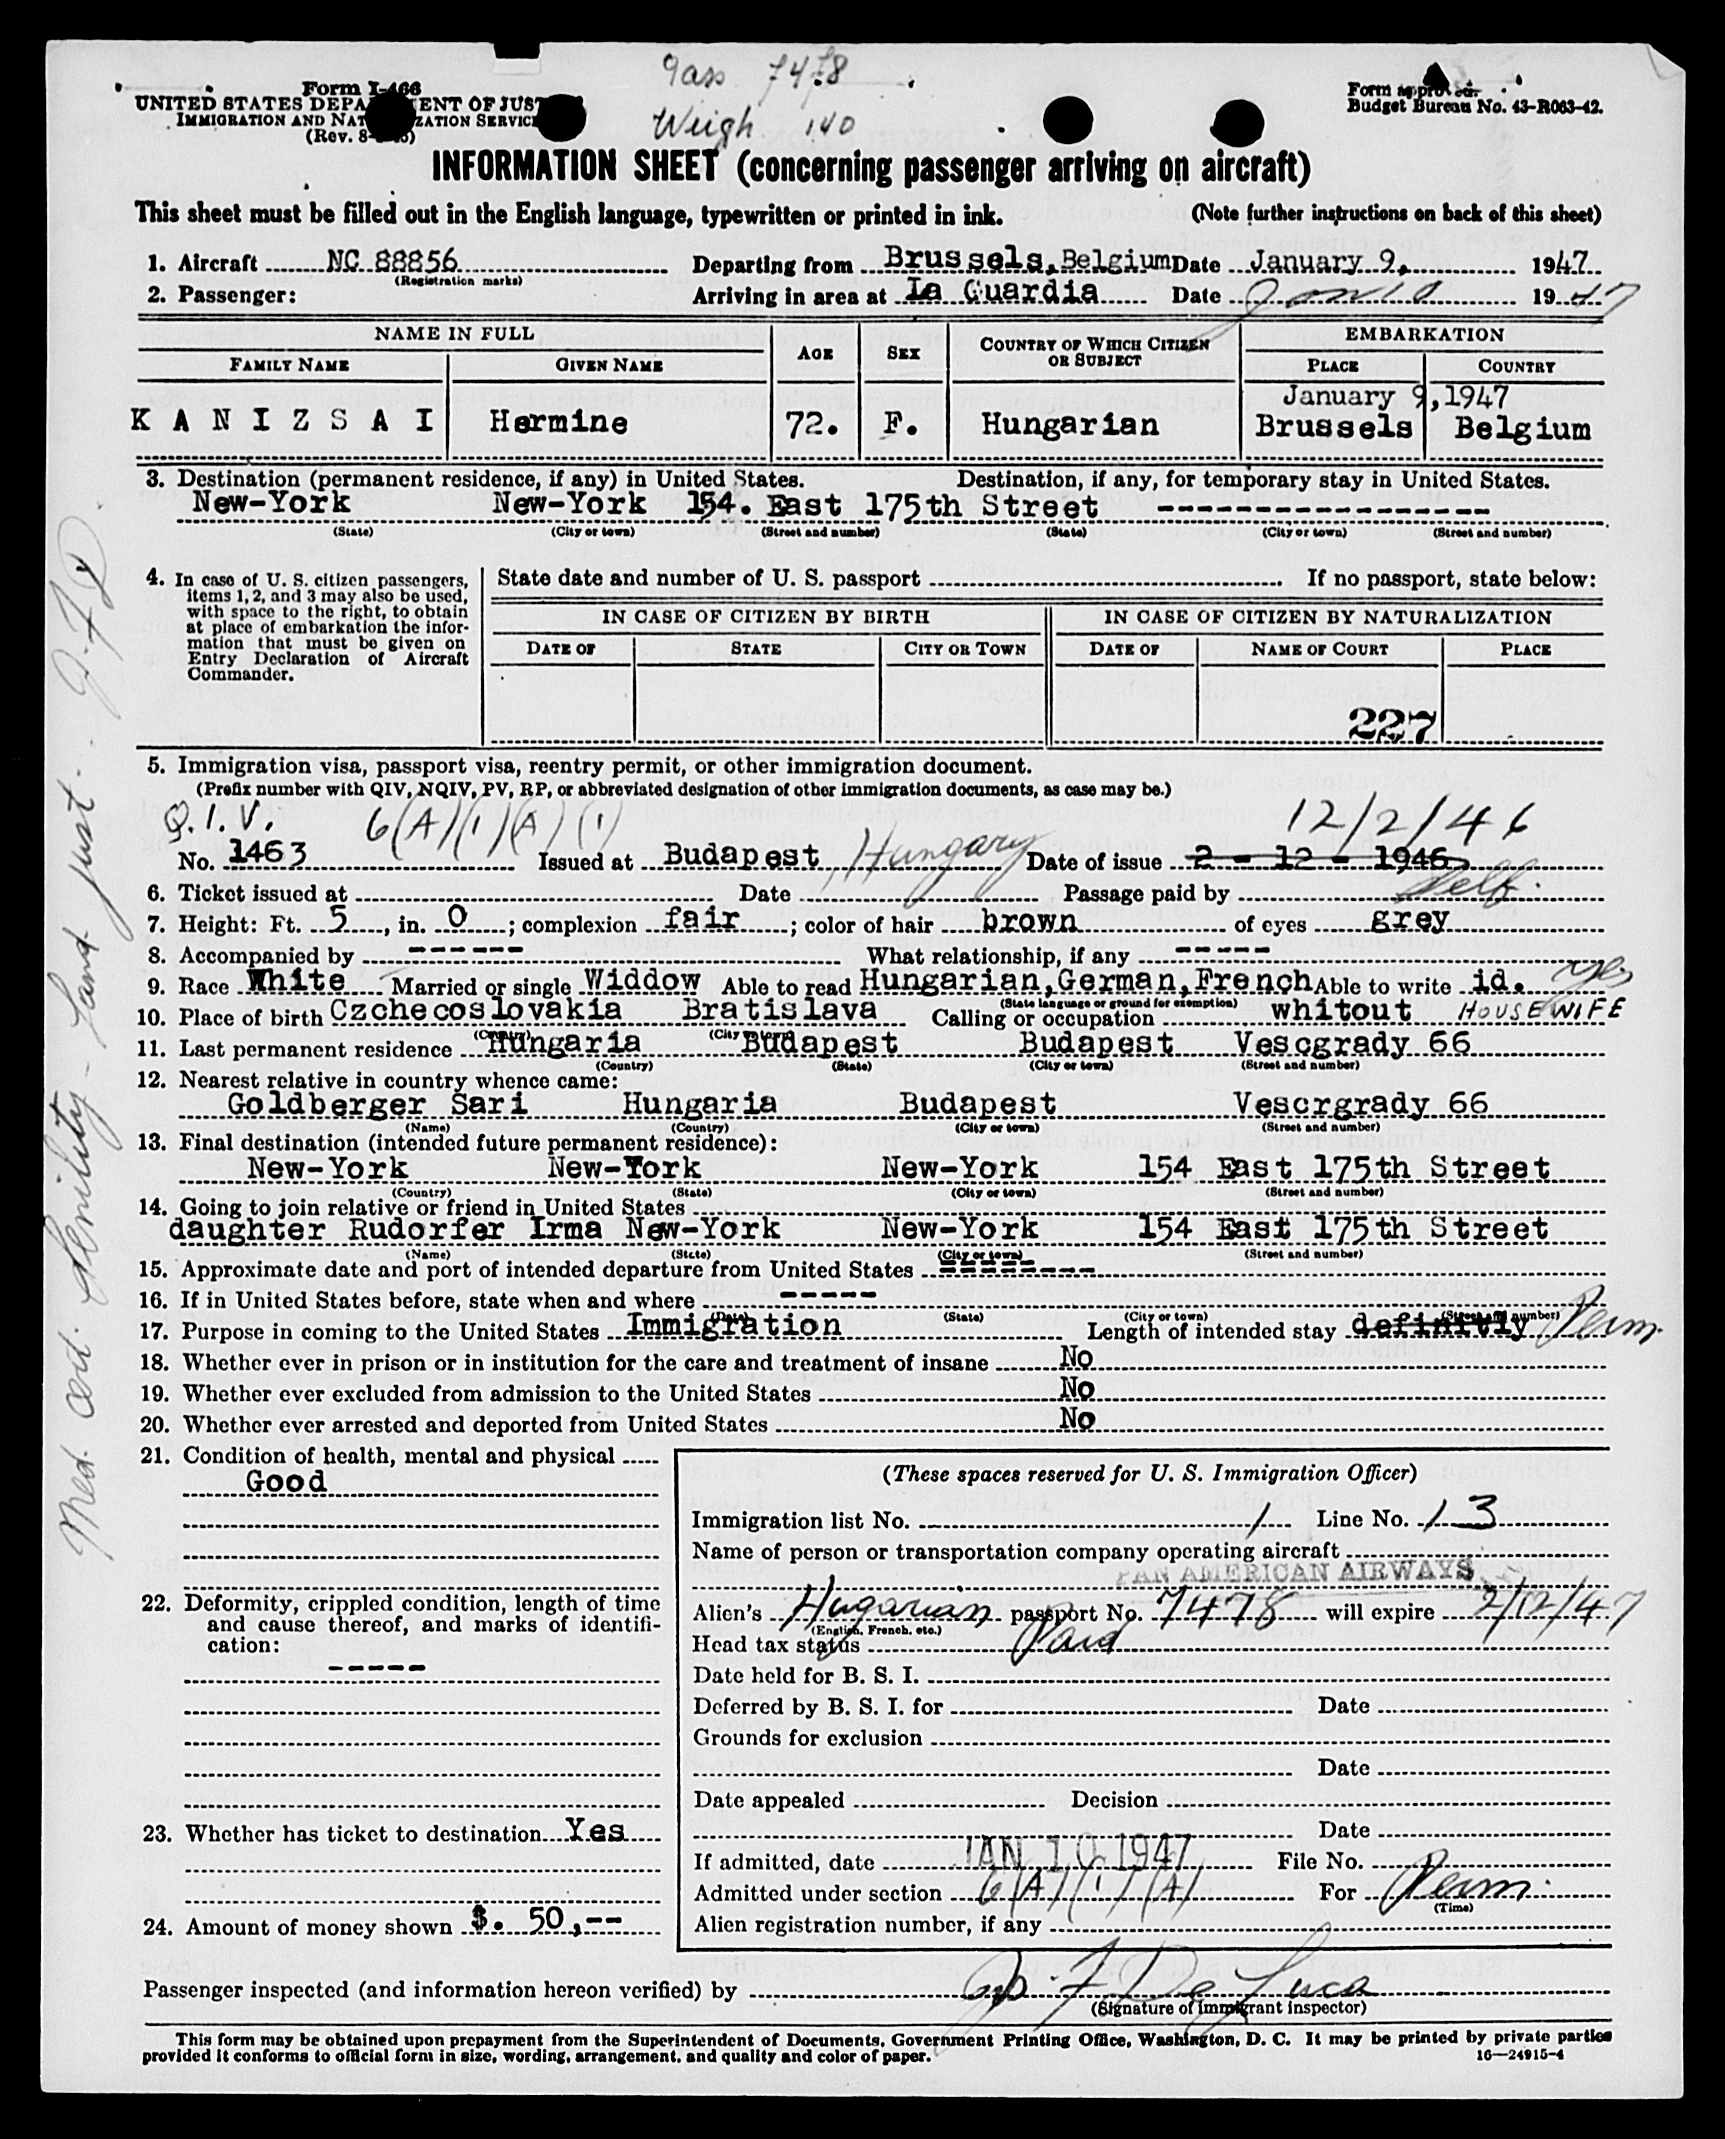 Pass 7478
Weigh 140
Form I-466
UNITED STATES DEPA ENT OF JUST
IMMIGRATION AND NAT ZATION SERVIC
(Rev. 8-
Form approved.
Budget Bureau No. 43-R063-42.
INFORMATION SHEET (concerning passenger arriving on aircraft)
This sheet must be filled out in the English language, typewritten or printed in ink. (Note further instructions on back of this sheet)
1. Aircraft NC 88856 Departing from Brussels, Belgium Date January 9, 1947
(Registration marks)
2. Passenger: Arriving in area at La Guardia Date Jan 10 1947
NAME IN FULL AGE SEX COUNTRY OF WHICH CITIZEN OR SUBJECT EMBARKATION
FAMILY NAME GIVEN NAME PLACE COUNTRY
January 9, 1947
K A N I Z S A I Hermine 72. F. Hungarian Brussels Belgium
3. Destination (permanent residence, if any) in United States. Destination, if any, for temporary stay in United States.
New-York New-York 154. East 175th Street -----------------
(State) (City or town) (Street and number) (State) (City or town) (Street and number)
4. In case of U. S. citizen passengers,
items 1, 2, and 3 may also be used,
with space to the right, to obtain
at place of embarkation the infor-
mation that must be given on
Entry Declaration of Aircraft
Commander.
State date and number of U. S. passport If no passport, state below:
IN CASE OF CITIZEN BY BIRTH IN CASE OF CITIZEN BY NATURALIZATION
DATE OF STATE CITY OR TOWN DATE OF NAME OF COURT PLACE
227
5. Immigration visa, passport visa, reentry permit, or other immigration document.
(Prefix number with QIV, NQIV, PV, RP, or abbreviated designation of other immigration documents, as case may be.)
Q.I.V. 6(A)(1)(A)(1) 12/2/46
No. 1463 Issued at Budapest Hungary Date of issue 2 - 12 - 1946
6. Ticket issued at Date Passage paid by Self.
7. Height: Ft. 5, in. 0; complexion fair; color of hair brown of eyes grey
8. Accompanied by ------ What relationship, if any -----
9. Race White Married or single Widdow Able to read Hungarian, German, French Able to write id. yes
(State language or ground for exemption)
10. Place of birth Czchecoslovakia Bratislava Calling or occupation whitout HOUSEWIFE
(Country) (City or town)
11. Last permanent residence Hungaria Budapest Budapest Vescgrady 66
(Country) (State) (City or town) (Street and number)
12. Nearest relative in country whence came:
Goldberger Sari Hungaria Budapest Vescrgrady 66
(Name) (Country) (City or town) (Street and number)
13. Final destination (intended future permanent residence):
New-York New-York New-York 154 East 175th Street
(Country) (State) (City or town) (Street and number)
14. Going to join relative or friend in United States
daughter Rudorfer Irma New-York New-York 154 East 175th Street
(Name) (State) (City or town) (Street and number)
15. Approximate date and port of intended departure from United States --------
16. If in United States before, state when and where -----
(Date) (State) (City or town) (Street and number)
17. Purpose in coming to the United States Immigration Length of intended stay definitly Perm.
18. Whether ever in prison or in institution for the care and treatment of insane No
19. Whether ever excluded from admission to the United States No
20. Whether ever arrested and deported from United States No
21. Condition of health, mental and physical
Good
22. Deformity, crippled condition, length of time
and cause thereof, and marks of identifi-
cation:
-----
23. Whether has ticket to destination Yes
24. Amount of money shown $. 50,--
(These spaces reserved for U. S. Immigration Officer)
Immigration list No. 1 Line No. 13
Name of person or transportation company operating aircraft
PAN AMERICAN AIRWAYS
Alien's Hugarian passport No. 7478 will expire 2/12/47
(English, French, etc.)
Head tax status Paid
Date held for B. S. I.
Deferred by B. S. I. for Date
Grounds for exclusion
Date
Date appealed Decision
Date
If admitted, date JAN 10 1947 File No.
Admitted under section 6(A)(1)(A) For Perm.
(Time)
Alien registration number, if any
Passenger inspected (and information hereon verified) by J. F. De Luca
(Signature of immigrant inspector)
This form may be obtained upon prepayment from the Superintendent of Documents, Government Printing Office, Washington, D. C. It may be printed by private parties
provided it conforms to official form in size, wording, arrangement, and quality and color of paper. 16—24915-4
Med. Cert. Senility - Land. just. J.F.D.